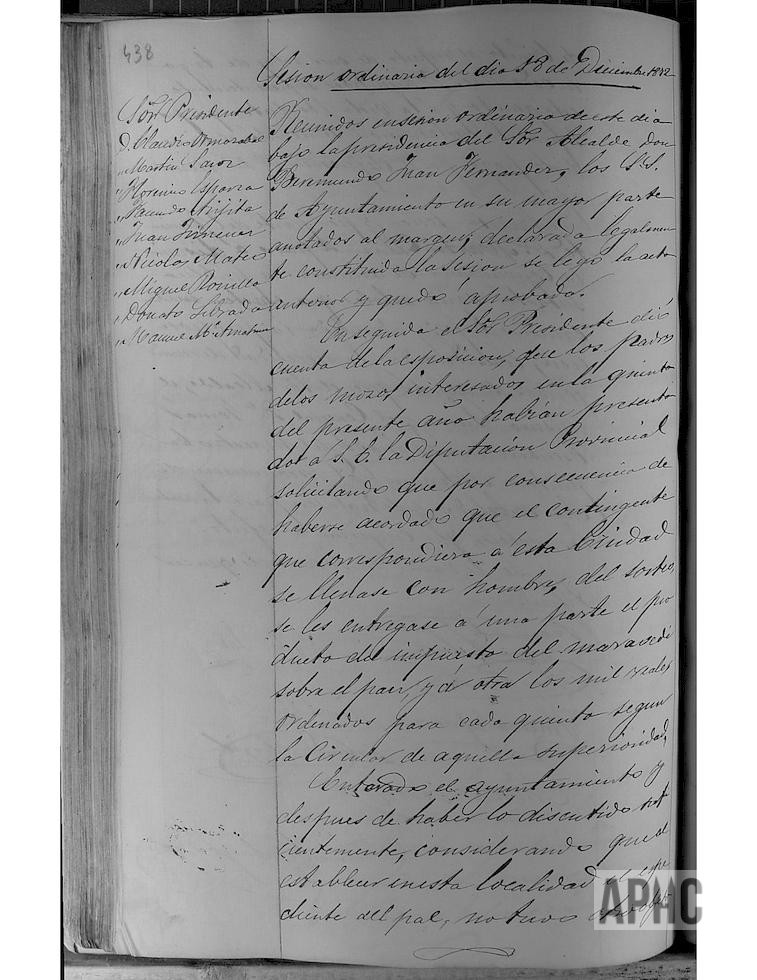 438
Sesion ordinaria del dia 18 de Diciembre 1872
Sor. Presidente
D. Claudio
" Martin
" Florencio Esparza
" Facundo
" Juan Jimenez
" Nicolas Mateo
" Miguel Pinilla
" Donato Librada
" Manuel Ma.
Reunidos en sesion ordinaria de este dia
bajo la presidencia del Sor. Alcalde Don
Beremundo Juan Fernandez, los S.S.
de Ayuntamiento en su mayor parte
anotados al margen; declarada legalmen
te constituida la sesion se leyó la acta
anterior y quedó aprobada.
En seguida el Sor. Presidente dió
cuenta de la esposicion, que los padres
de los mozos interesados en la quinta
del presente año habian presenta
do á S. E. la Diputacion Provincial
solicitando que por consecuencia de
haberse acordado que el contingente
que correspondiera á esta Ciudad
se llenase con hombres del sorteo,
se les entregase á una parte el pro
ducto del impuesto del maravedi
sobre el pan, y á otra los mil reales
ordenados para cada quinto segun
la Circular de aquella superioridad,
Enterado el ayuntamiento y
despues de haberlo discutido sufi
cientemente, considerando que al
establecer en esta localidad el espe
diente del pan, no tuvo otro obje
APHC